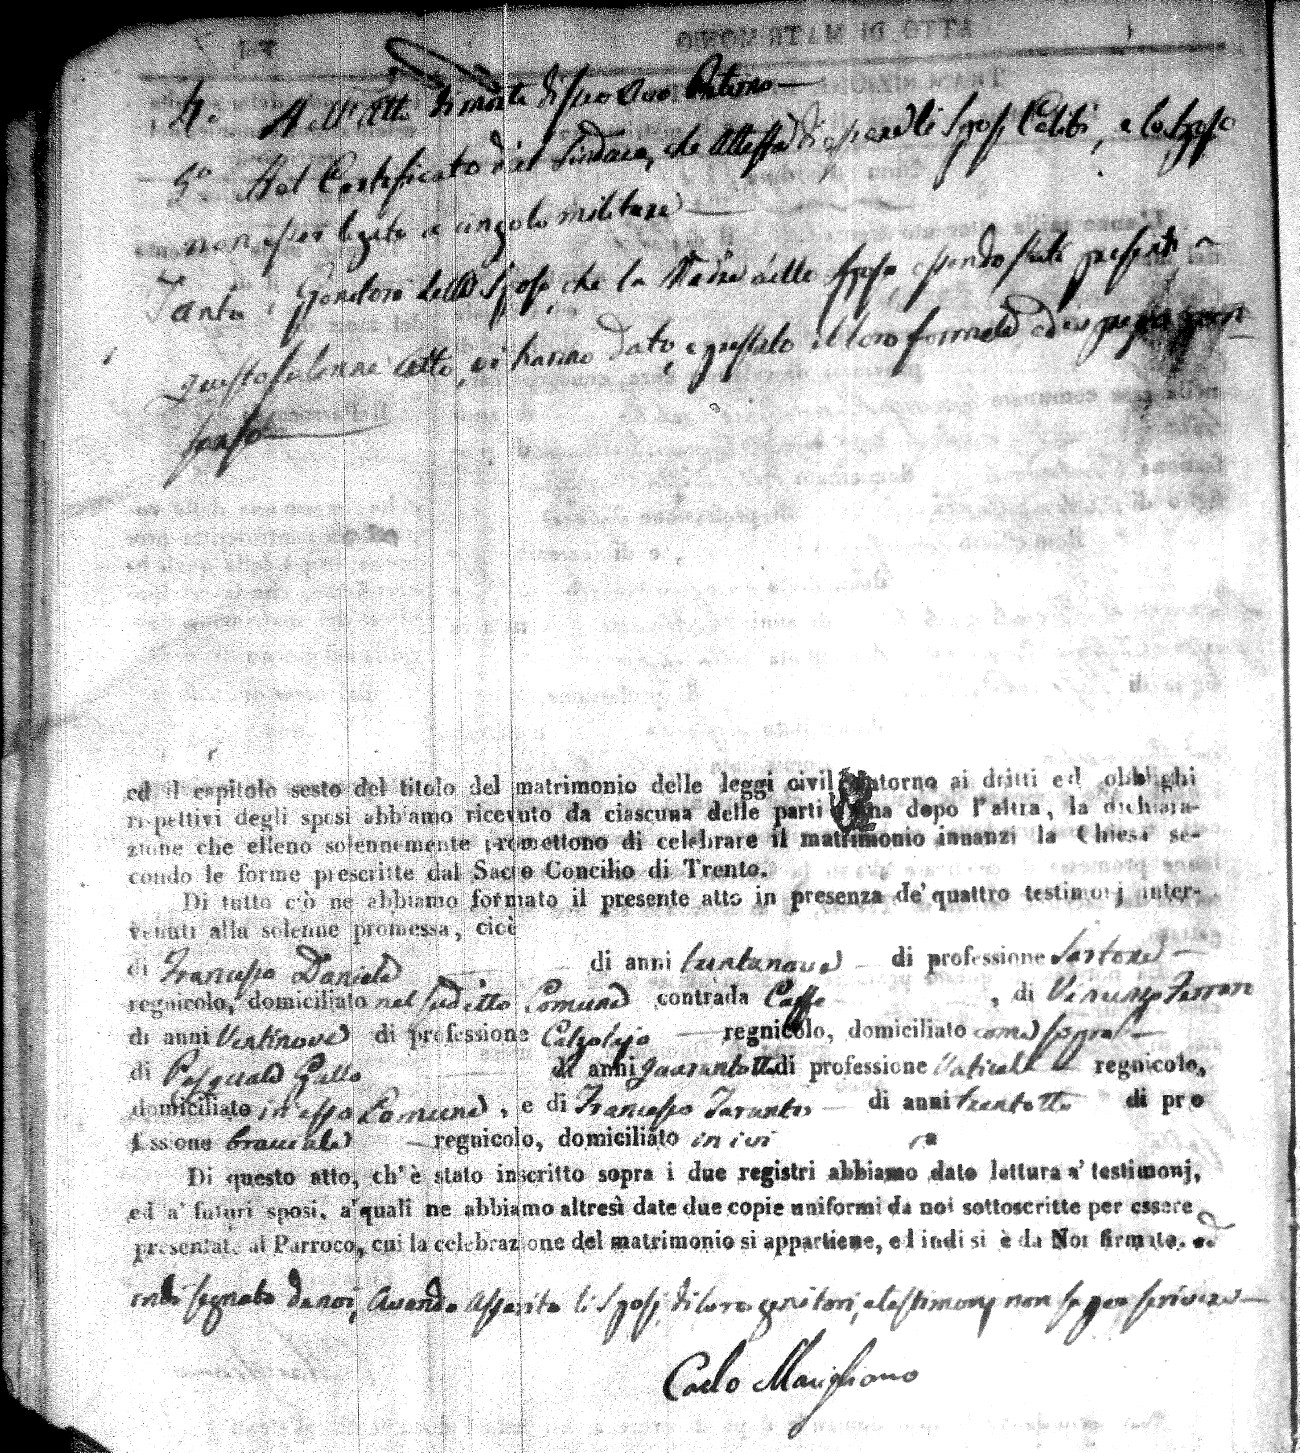 4. Dell'Atto di morte di suo Avo Paterno —
5° Del Certificato del Sindaco, che attesta di essere li Sposi Celibi, e lo Sposo
non esser legato a vingolo militare —
Tanto i Genitori dello Sposo, che la Madre della Sposa, essendo stati presenti a
questo solenne atto, vi hanno dato, e prestato il loro formale ed espresso con
senso
ed il capitolo sesto del titolo del matrimonio delle leggi civili intorno ai dritti ed obblighi
rispettivi degli sposi abbiamo ricevuto da ciascuna delle parti una dopo l'altra, la dichiara-
zione che elleno solennemente promettono di celebrare il matrimonio innanzi la Chiesa se-
condo le forme prescritte dal Sacro Concilio di Trento.
Di tutto ciò ne abbiamo formato il presente atto in presenza de' quattro testimonj inter-
venuti alla solenne promessa, cioè
di Francesco Daniele di anni trentanove di professione Sartore —
regnicolo, domiciliato nel sudetto Comune contrada , di Vincenzo Ferrari
di anni Ventinove di professione Calzolajo — regnicolo, domiciliato come sopra —
di Pasquale Gallo di anni quarantotto di professione regnicolo,
domiciliato in esso Comune, e di Francesco Taranto — di anni trentotto di pro
fessione bracciale — regnicolo, domiciliato in ivi
Di questo atto, ch'è stato inscritto sopra i due registri abbiamo dato lettura a' testimonj,
ed a' futuri sposi, a' quali ne abbiamo altresì date due copie uniformi da noi sottoscritte per essere
presentate al Parroco, cui la celebrazione del matrimonio si appartiene, ed indi si è da Noi firmato, ed
indi segnato da noi, avendo asserito li Sposi, di loro genitori, e testimonj non saper scrivere —
Carlo Marigliano